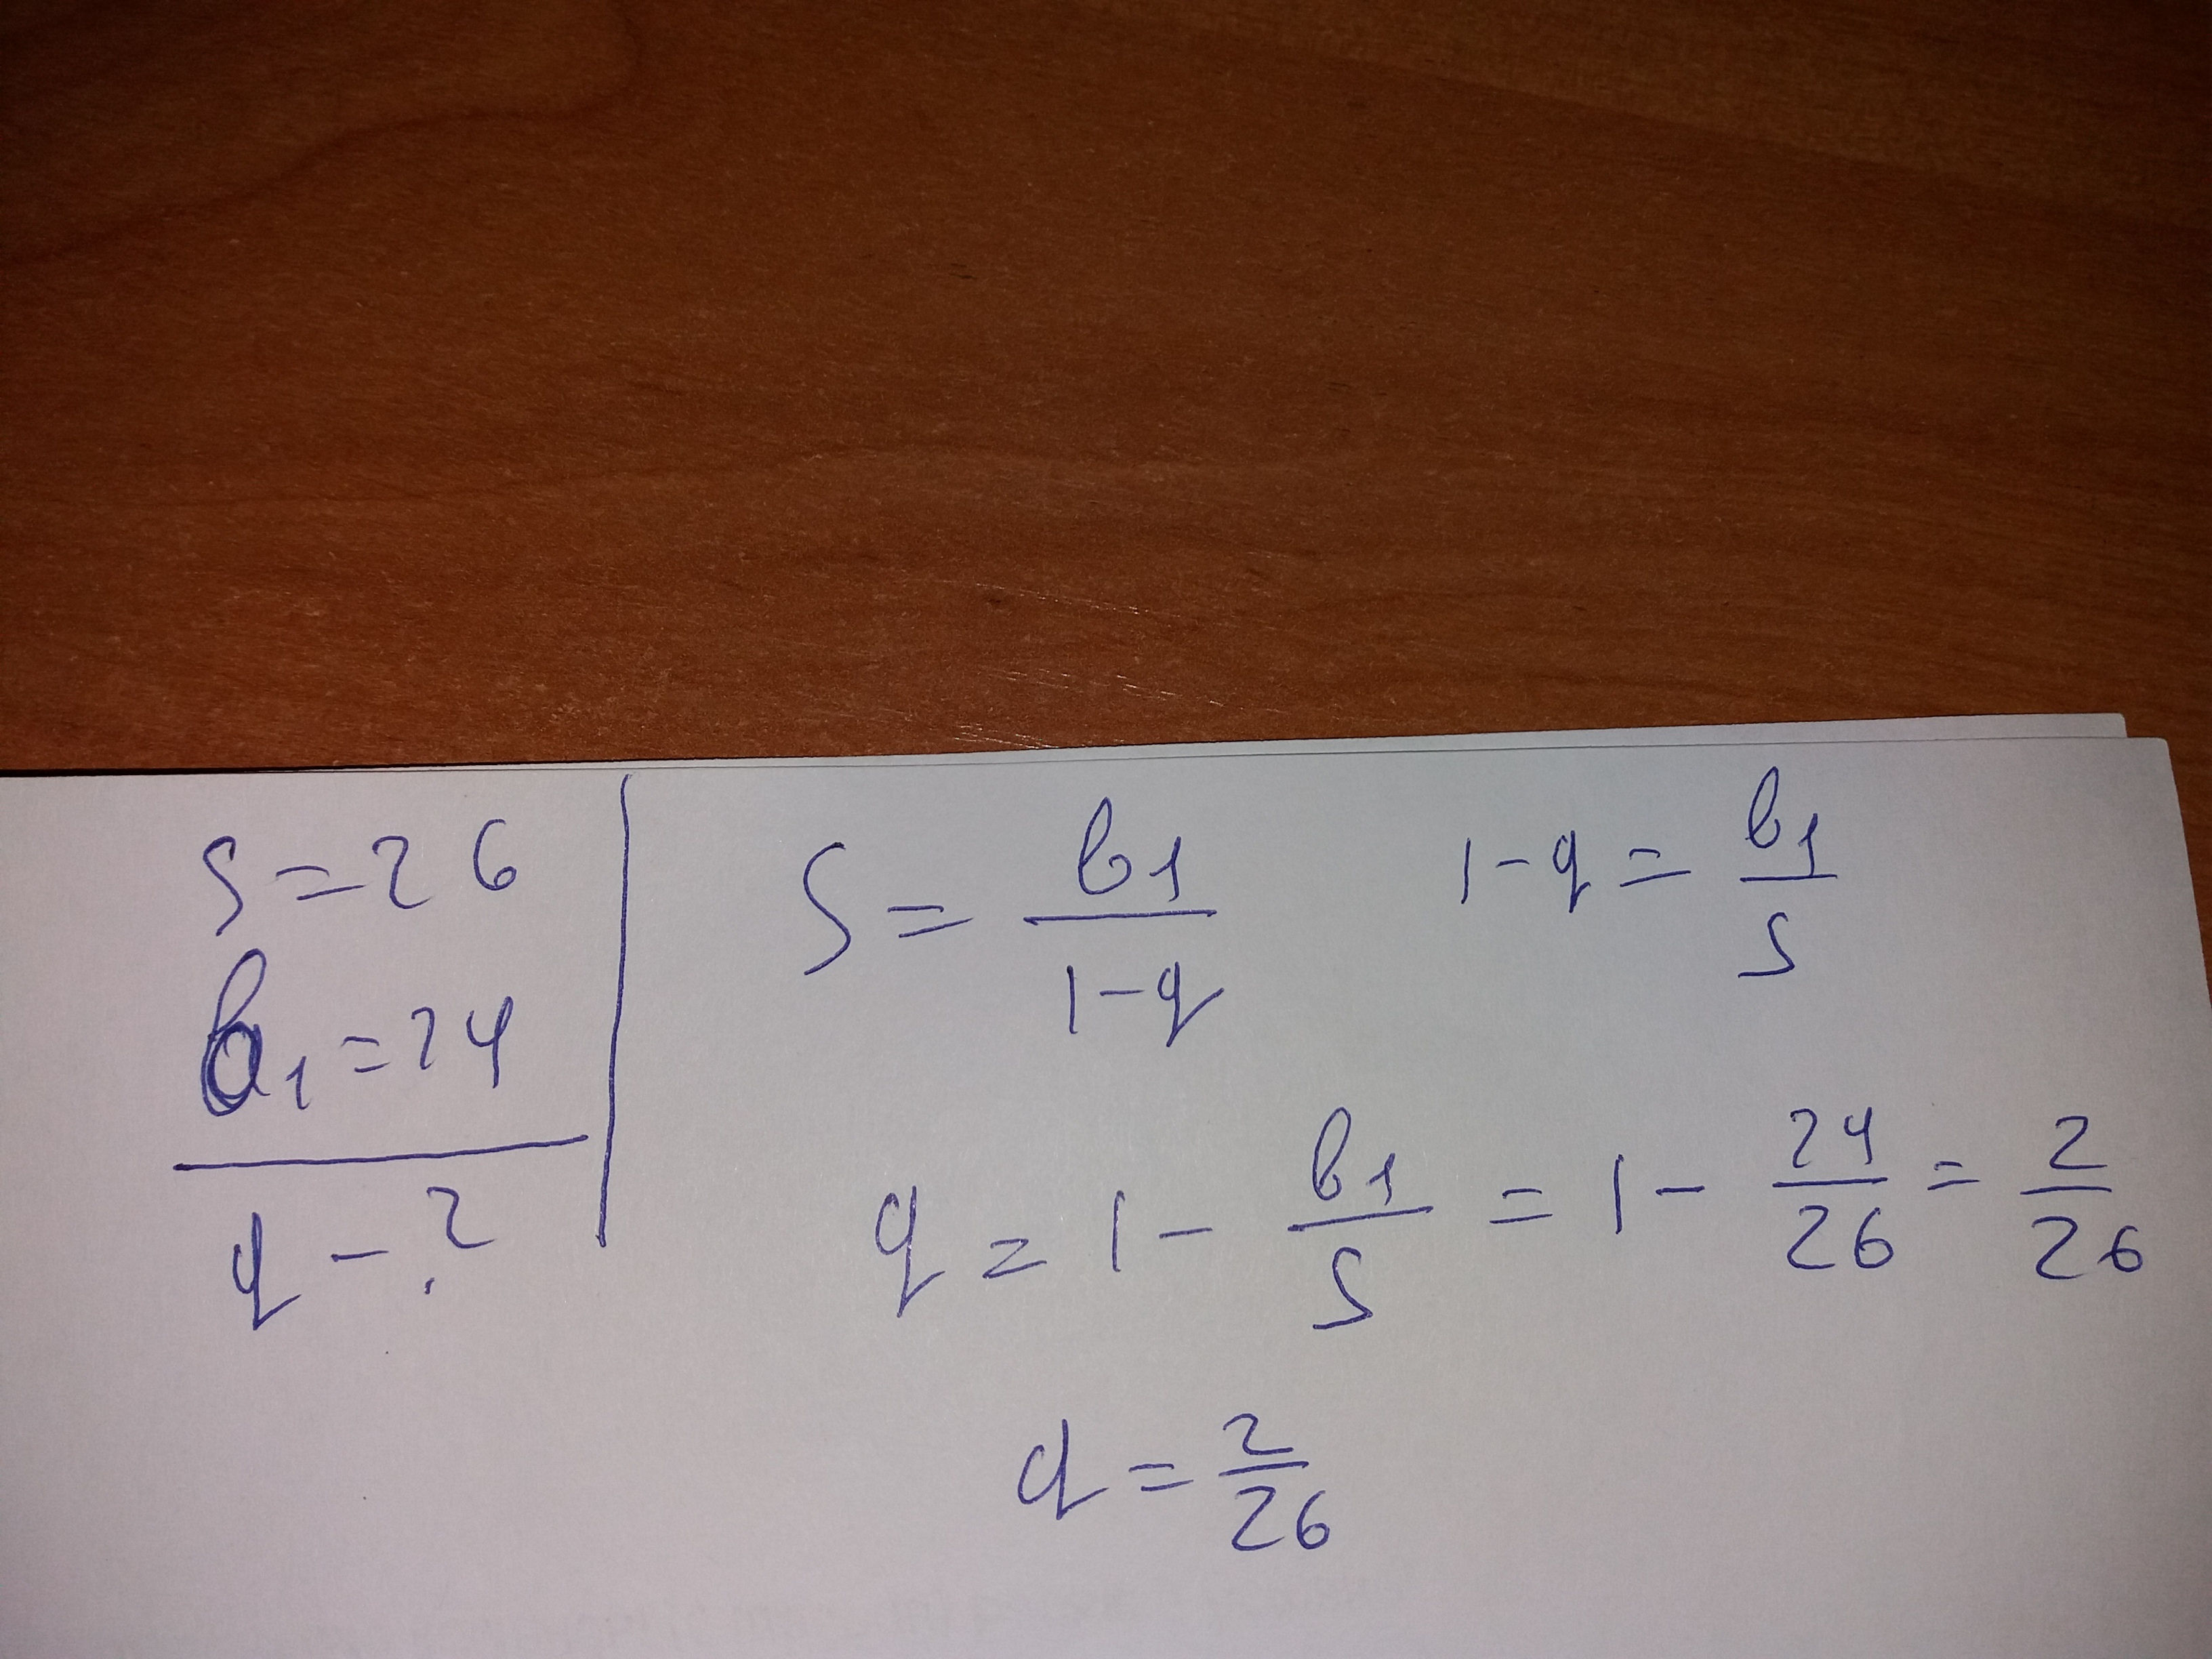 S = 26
b₁ = 24
q - ?
S = b₁/(1-q)
1-q = b₁/S
q = 1 - b₁/S = 1 - 24/26 = 2/26
q = 2/26